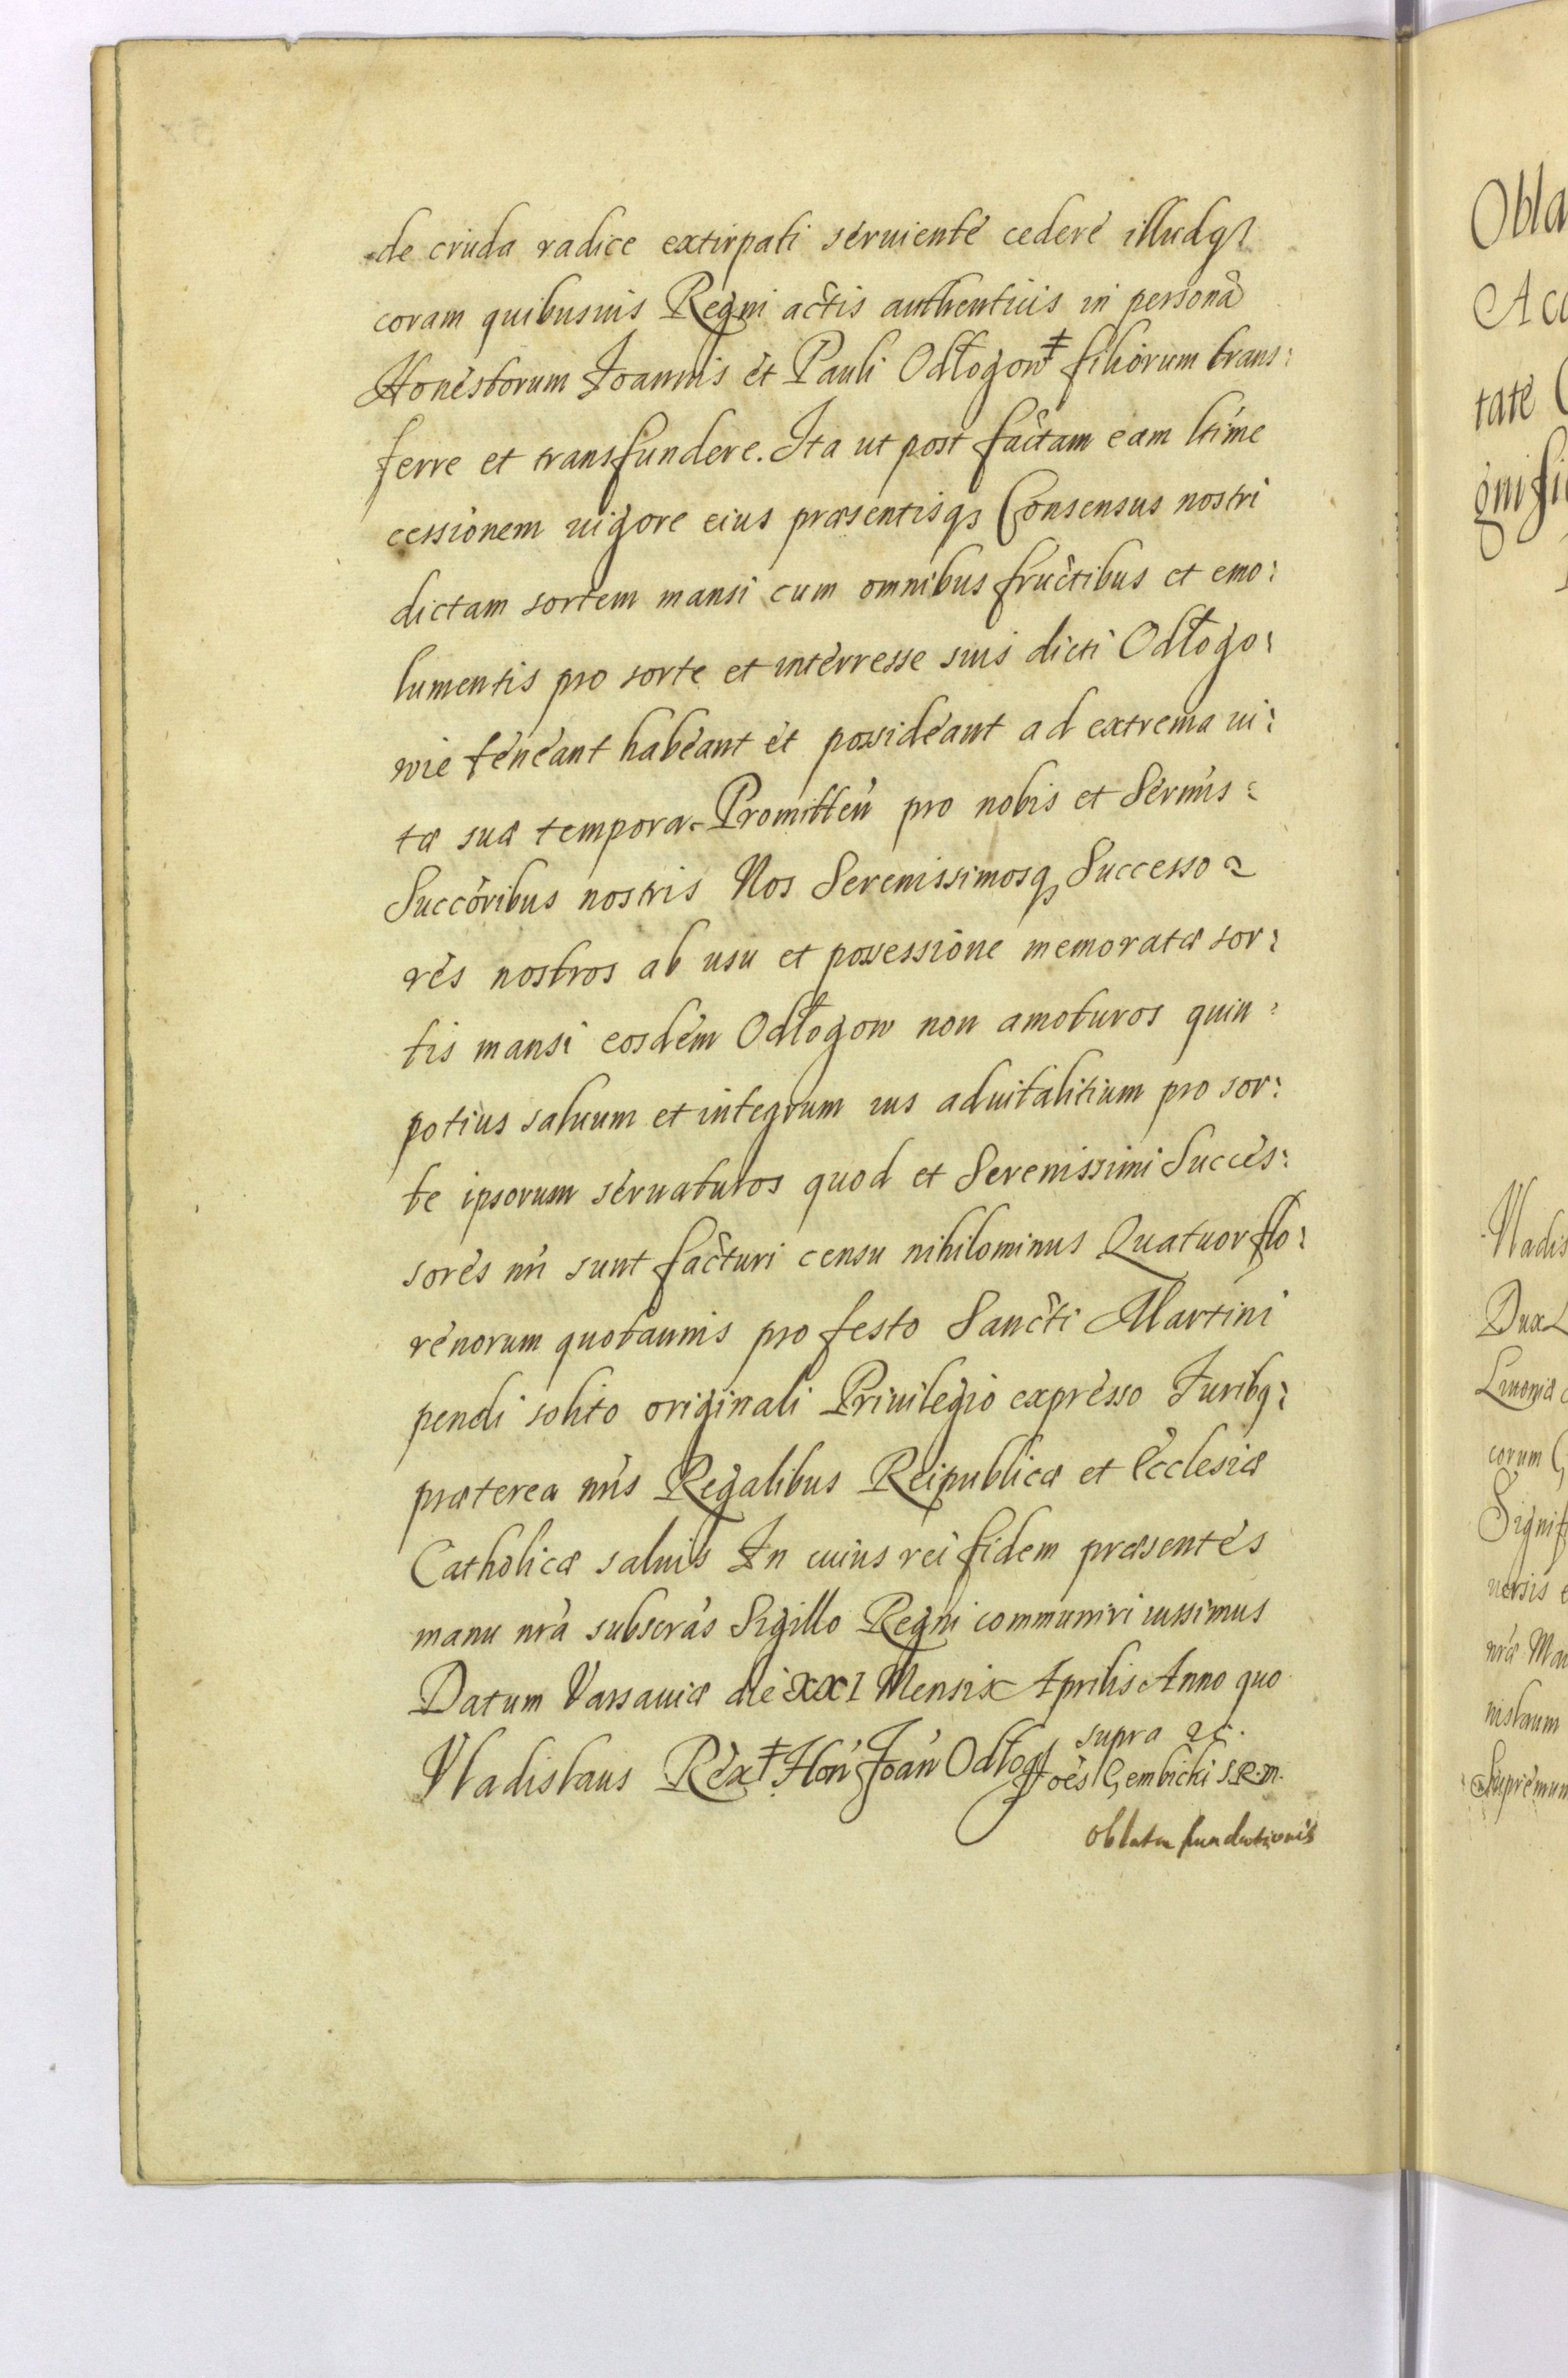 de cruda radice extirpati seruiente cedere illudqȝ
coram quibusuis Regni actis authenticis in persona
Honestorum Joannis et Pauli Odłogow ‡ filiorum trans:
ferre et transfundere. Ita ut post factam eam ltime
cessionem uigore eius præsentisqȝ Consensus nostri
dictam sortem mansi cum omnibus fructibus et emo:
lumentis pro sorte et interresse suis dicti Odłogo:
wie teneant habeant et possideant ad extrema ui:
tæ suæ tempora. Promitteñ pro nobis et Sermis:
Succoribus nostris Nos Serenissimosqȝ Successo:
res nostros ab usu et possessione memoratæ sor:
tis mansi eosdem Odłogow non amoturos quin:
potius saluum et integrum ius aduitalitium pro sor:
te ipsorum seruaturos quod et Serenissimi Succes:
sores nri sunt facturi censu nihilominus Quatuor flo:
renorum quotannis pro festo Sancti Martini
pendi solito originali Priuilegio expresso Juribqȝ
præterea nris Regalibus Reipublicæ et Ecclesiæ
Catholicæ saluis In cuius rei fidem præsentes
manu nra subscras Sigillo Regni communiri iussimus
Datum Varsauiæ die XXI Mensis Aprilis Anno quo
supra etc.
Vladislaus Rex ‡ Hon Joan Odłog Joes Gembicki S.R.M.
Oblata fundationis
Obla
Acc
tate
gnifi
Vladis
Dux L
Liuoniæ
corum G
Signif
uersis e
nræ Ma
nislaum
Supremum